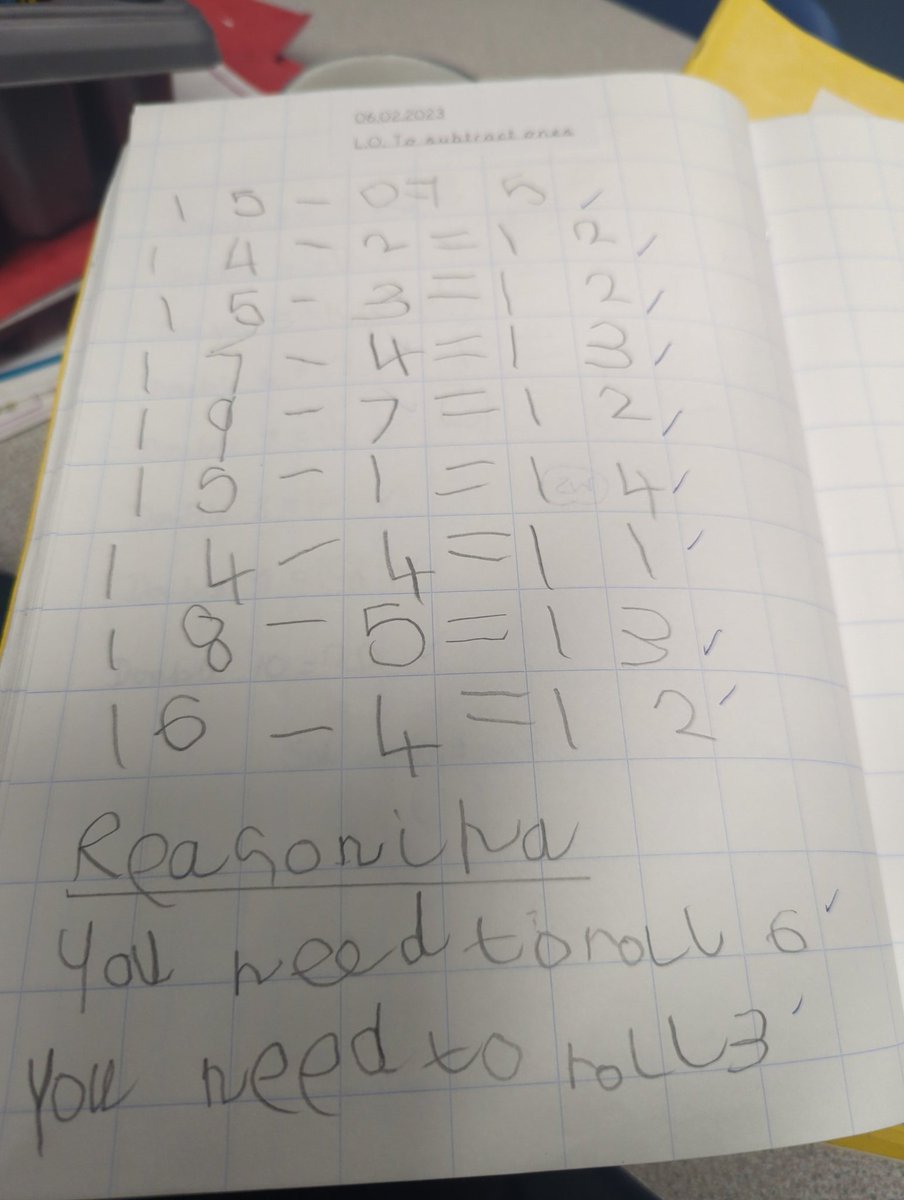 06.02.2023
L.O. To subtract ones
15 - 0 = 15
14 - 2 = 12
15 - 3 = 12
17 - 4 = 13
19 - 7 = 12
15 - 1 = 14
14 - 4 = 11
18 - 5 = 13
16 - 4 = 12
Reasonina
You need to roll 6
You need to roll 3